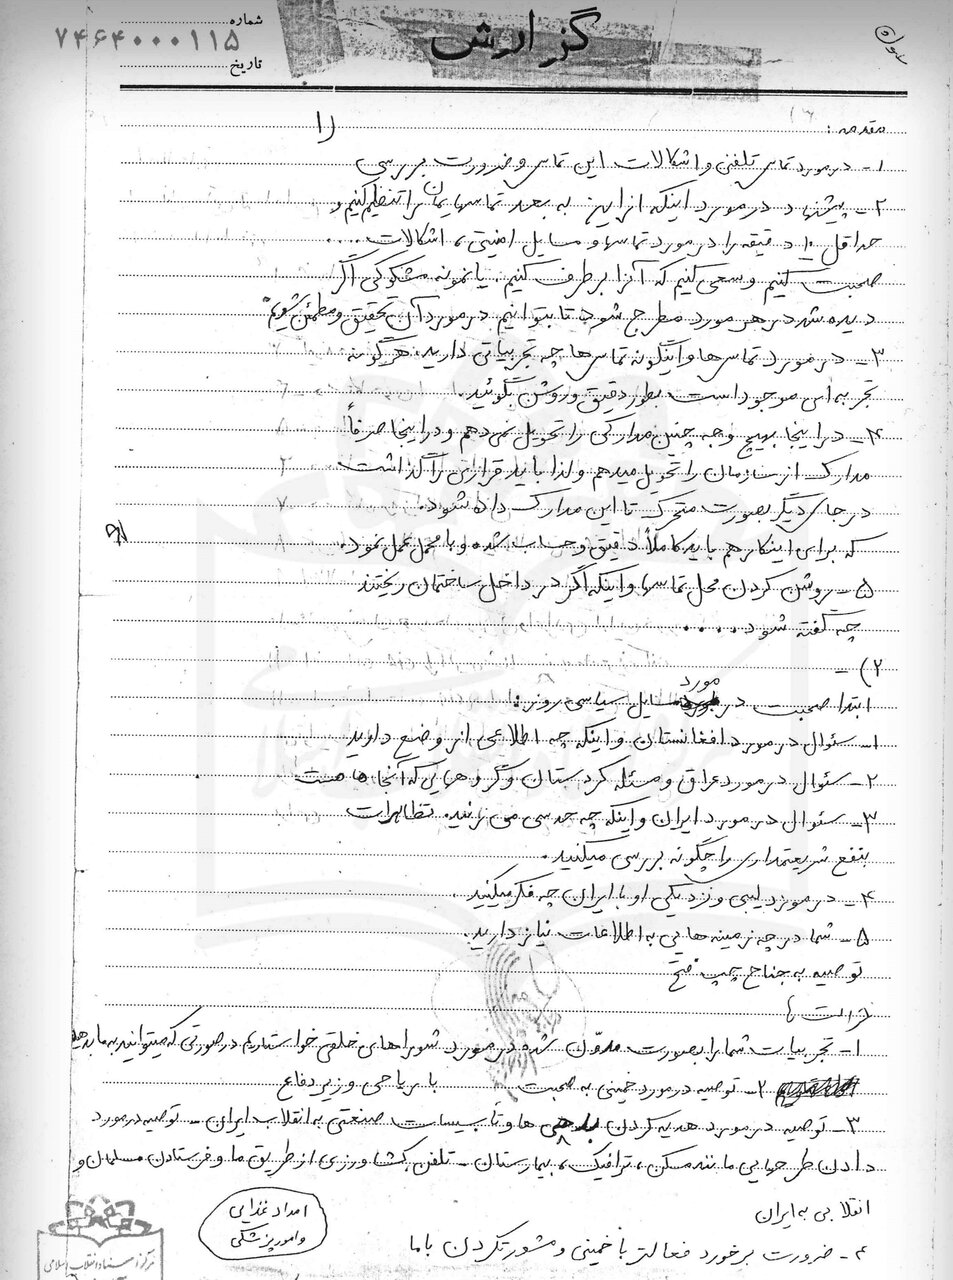 گزارش
شماره
۷۴۶۴۰۰۰۱۱۵
تاریخ
مقدمه :
۱)
۱- در مورد تماس تلفنی و اشکالات این تماس و ضرورت بررسی
۲- پیشنهاد در مورد اینکه از این به بعد تماسهایمان را تنظیم کنیم و
حداقل ۱۰ دقیقه را در مورد تماسها و مسایل امنیتی، اشکالات ....
صحبت کنیم و سعی کنیم که آنرا برطرف کنیم. یا نمونه مشکوکی اگر
دیده شد در هر مورد مطرح شود تا بتوانیم در مورد آن تحقیق و مطمئن شویم
۳- در مورد تماس‌ها و اینگونه تماس‌ها چه تجربیاتی دارید. هر گونه
تجربه‌ای موجود است بطور دقیق و روشن بگوئید.
۴- در اینجا بهیچ وجه چنین مدارکی را تحویل نمی‌دهم و در اینجا صرفاً
مدارک از سازمان را تحویل میدهم و لذا باید قراری را گذاشت
در جای دیگر بصورت متحرک تا این مدارک داده شود.
که برای اینکار هم باید کاملاً دقیق و حساب شده و با محمل عمل نمود.
۵- روشن کردن محل تماسها و اینکه اگر در داخل ساختمان ریختند
چه گفته شود ....
۲) -
ابتدا صحبت در مورد مسایل سیاسی روز :
۱- سئوال در مورد افغانستان و اینکه چه اطلاعی از وضع دارید
۲- سئوال در مورد عراق و مسئله کردستان و گروههایی که آنجا هست
۳- سئوال در مورد ایران و اینکه چه حدسی می‌زنید. تظاهرات
بنفع شریعتمداری را چگونه بررسی میکنید.
۴- در مورد لیبی و نزدیکی او با ایران چه فکر میکنید.
۵- شما در چه زمینه‌هایی به اطلاعات نیاز دارید.
توصیه به جناح چپ فتح
خواست‌ها
۱- تجربیات شما را بصورت مدوّن شده در مورد شوراهای خلقی خواستاریم در صورتی که میتوانید به ما بدهید
۲- توصیه در مورد خمینی به صحبت با ریاحی وزیر دفاع
۳- توصیه در مورد هدیه کردن ها و تأسیسات صنعتی به انقلاب ایران - توصیه در مورد
دادن طرحهایی مانند مسکن، ترافیک، بیمارستان - تلفن کشاورزی از طریق ما و فرستادن مسلمان و
انقلابی به ایران
امداد غذایی
و امور پزشکی
۴- ضرورت برخورد فعالتر با خمینی و مشورت کردن با ما
مرکز اسناد انقلاب اسلامی